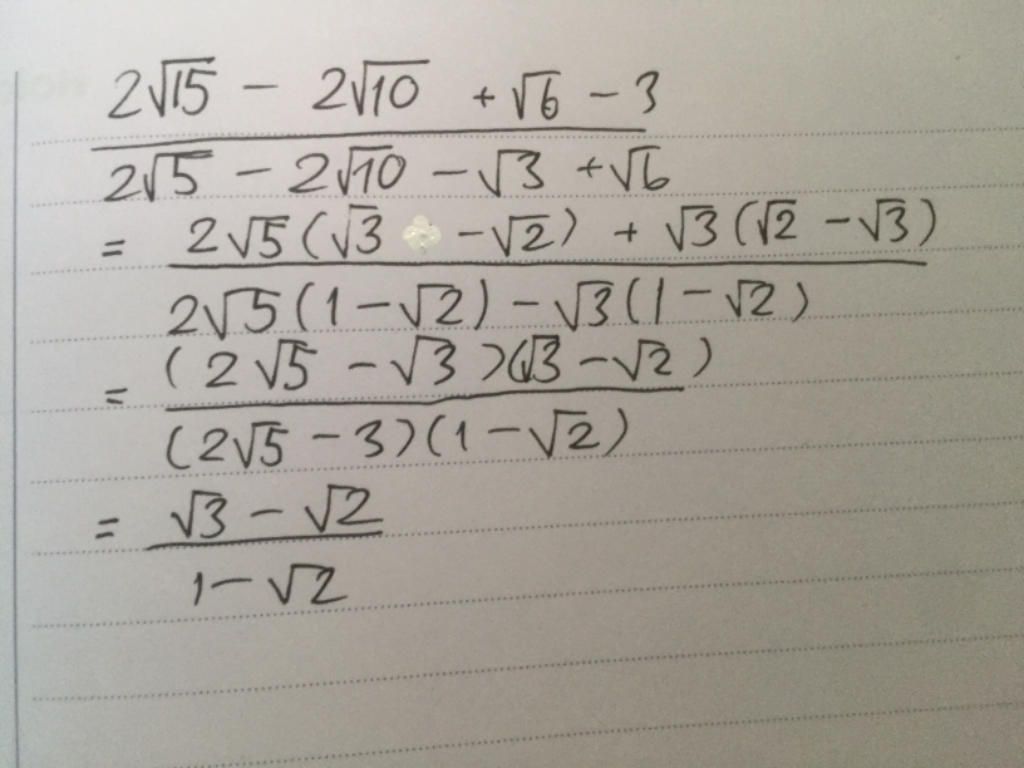 2√15 - 2√10 + √6 - 3
2√5 - 2√10 - √3 + √6
= 2√5(√3 - √2) + √3(√2 - √3)
2√5(1 - √2) - √3(1 - √2)
= (2√5 - √3)(√3 - √2)
(2√5 - 3)(1 - √2)
= √3 - √2
1 - √2